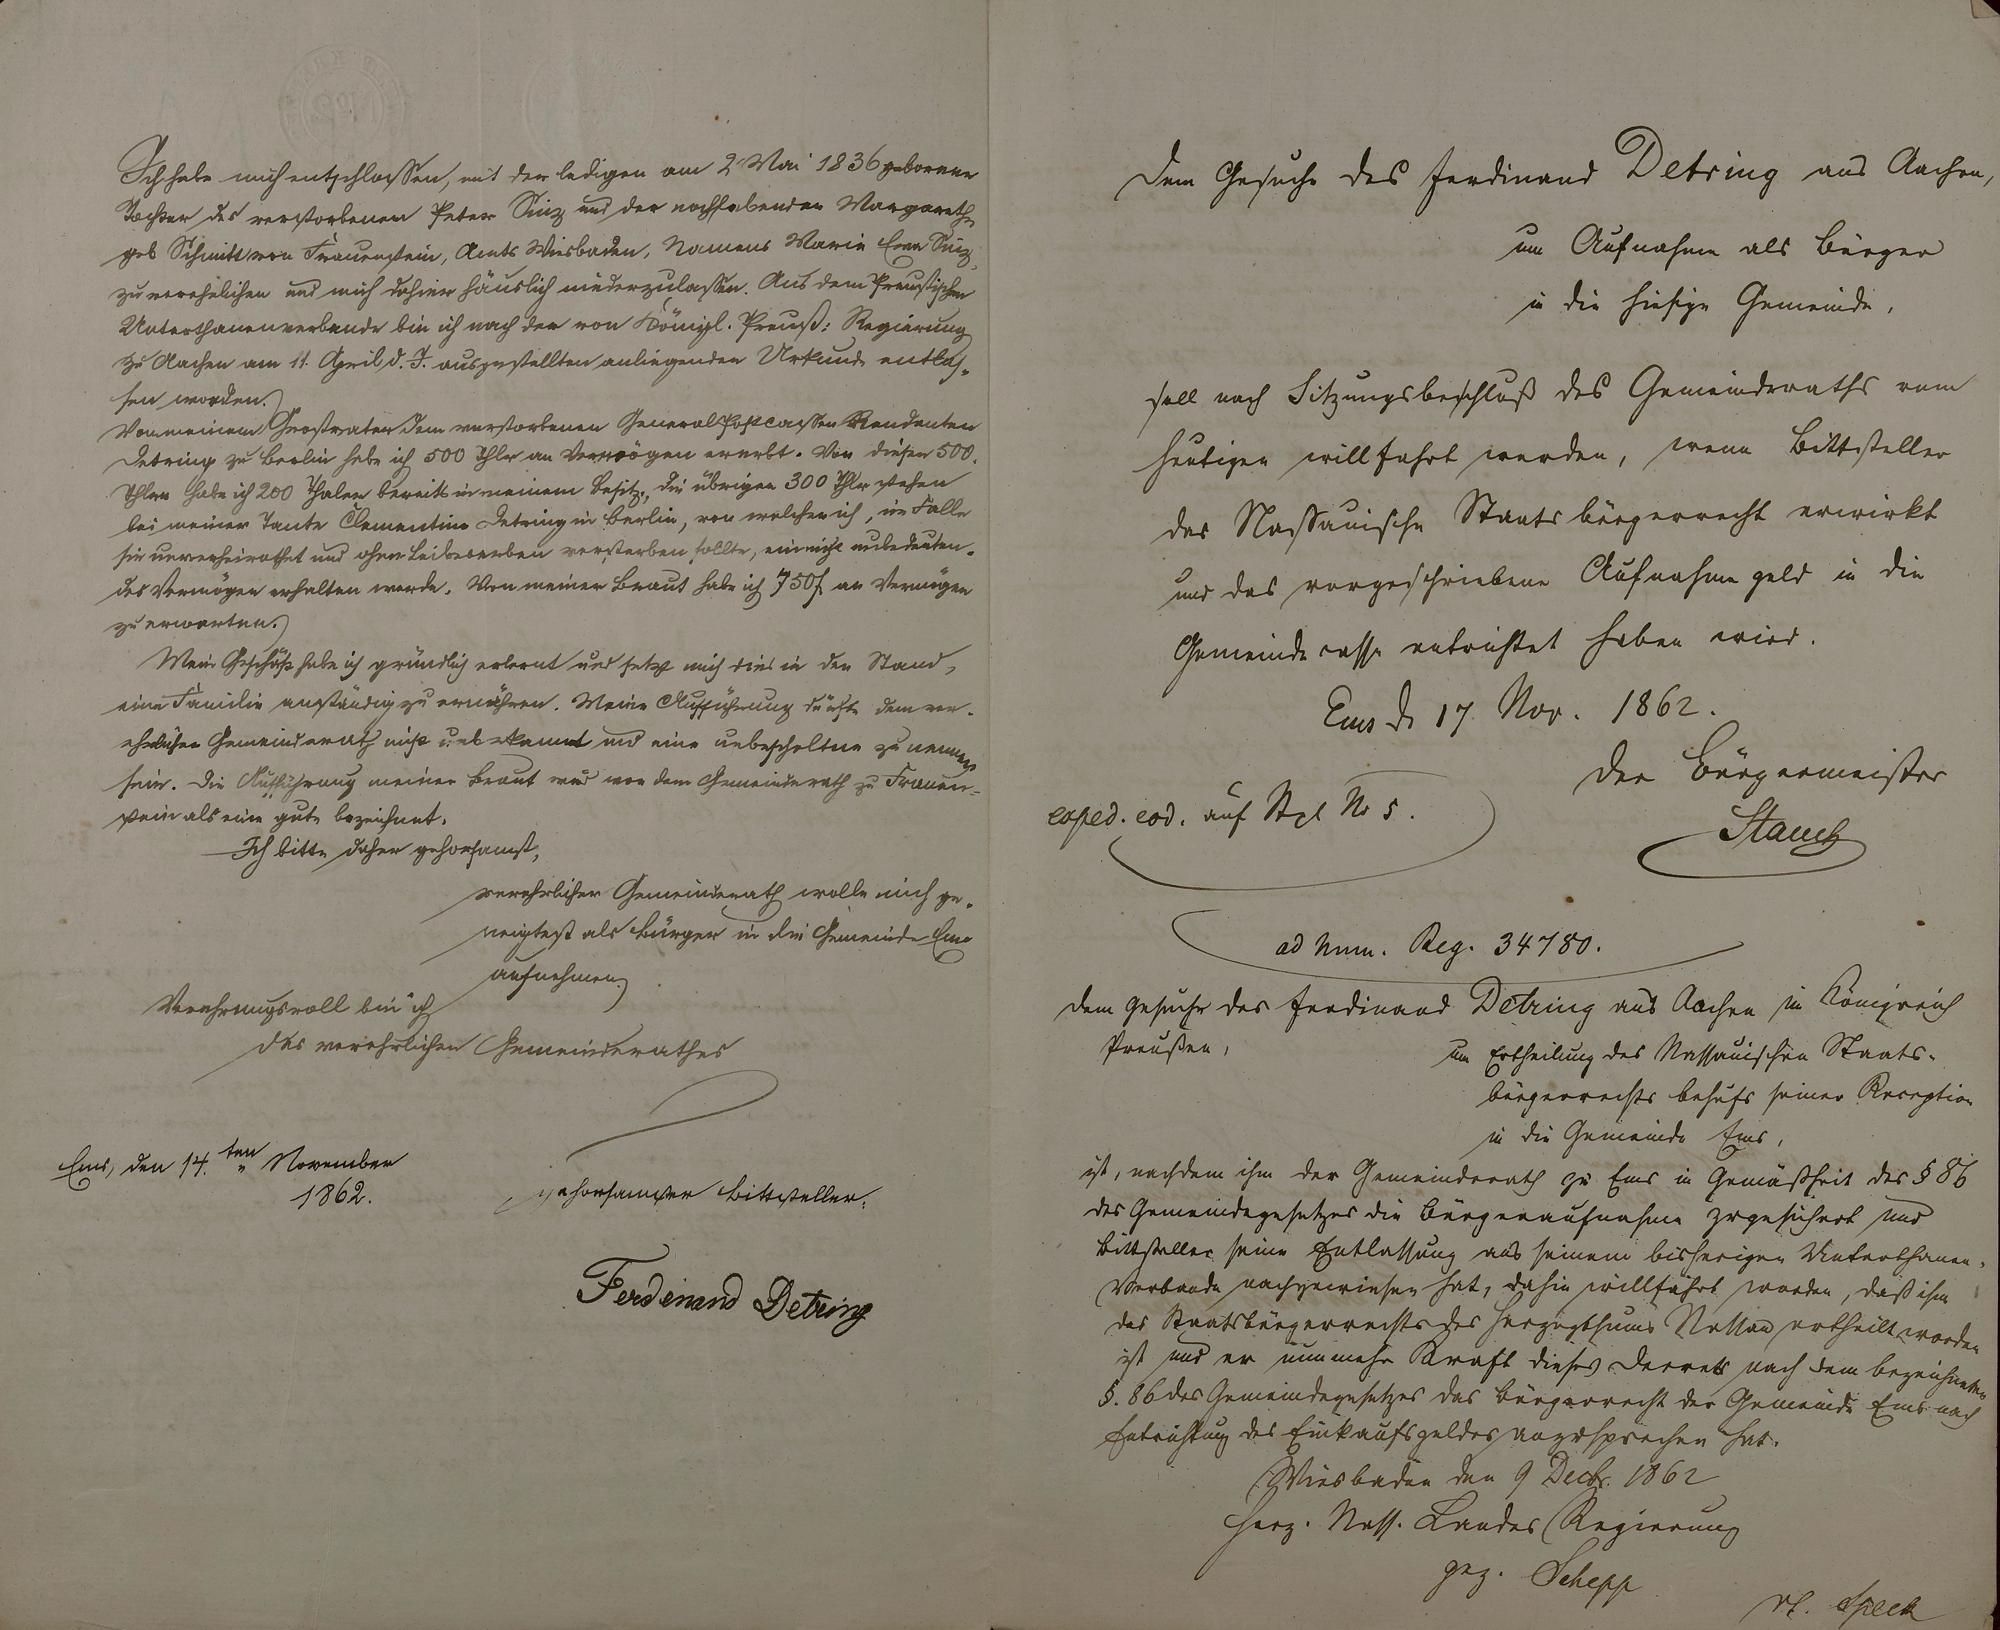 Ich habe mich entschlossen, mit der ledigen am 2 Mai 1836 geborenen
Tochter des verstorbenen Peter Sinz und der nochlebenden Margarethe
geb Schmitt von Frauenstein, Amts Wiesbaden, Namens Maria Eva Sinz,
zu verehelichen und mich dahier häuslich niederzulassen. Aus dem Preußischen
Unterthanenverbande bin ich nach der von Königl. Preuß: Regierung
zu Aachen am 11. April d. J. ausgestellten anliegenden Urkunde entlas-
sen worden.
Von meinem Großvater dem verstorbenen Generalpostcassen Rendanten
Detring zu Berlin habe ich 500 Thlr an Vermögen ererbt. Von diesen 500
Thlrn habe ich 200 Thaler bereits in meinem Besitz, die übrigen 300 Thlr stehen
bei meiner Tante Clementine Detring in Berlin, von welcher ich, im Falle
sie unverheirathet und ohne Leibeserben versterben sollte, ein nicht unbedeuten-
des Vermögen erhalten werde. Von meiner Braut habe ich 750f an Vermögen
zu erwarten.
Mein Geschäft habe ich gründlich erlernt und setzt mich dies in den Stand,
eine Familie anständig zu ernähren. Meine Aufführung dürfte dem ver-
ehrlichen Gemeinderath nicht unbekannt und eine unbescholtne zu nennen
sein. Die Aufführung meiner Braut wird von dem Gemeinderath zu Frauen-
stein als eine gute bezeichnet.
Ich bitte daher gehorsamst,
verehrlicher Gemeinderath wolle mich ge-
neigtest als Bürger in die Gemeinde Ems
aufnehmen.
Verehrungsvoll bin ich
des verehrlichen Gemeinderathes
Ems, den 14.ten November
1862.
gehorsamster Bittsteller.
Ferdinand Detring
Dem Gesuche des Ferdinand Detring aus Aachen,
um Aufnahme als Bürger
in die hiesige Gemeinde,
soll nach Sitzungsbeschluß des Gemeinderaths vom
heutigen willfahrt werden, wenn Bittsteller
das Nassauische Staatsbürgerrecht erwirkt
und das vorgeschriebene Aufnahmegeld in die
Gemeindecasse entrichtet haben wird.
Ems d. 17. Nov. 1862.
Der Bürgermeister
exped. eod. auf Stpl No 5.
ad Num. Reg. 34780.
Dem Gesuche des Ferdinand Detring aus Aachen im Königreich
Preußen,
um Ertheilung des Nassauischen Staats-
bürgerrechts behufs seiner Reception
in die Gemeinde Ems,
ist, nachdem ihm der Gemeinderath zu Ems in Gemäßheit des § 86
des Gemeindegesetzes die Bürgeraufnahme zugesichert und
Bittsteller seine Entlassung aus seinem bisherigen Unterthanen-
Verbande nachgewiesen hat, dahin willfahrt worden, daß ihm
das Staatsbürgerrecht des Herzogthums Nassau ertheilt worden
ist und er nunmehr Kraft dieses Decrets nach dem bezeichneten
§. 86 des Gemeindegesetzes das Bürgerrecht der Gemeinde Ems nach
Entrichtung des Einkaufsgeldes anzusprechen hat.
Wiesbaden den 9 Decbr. 1862
Herz. Nass. Landes Regierung
gez. Schepp